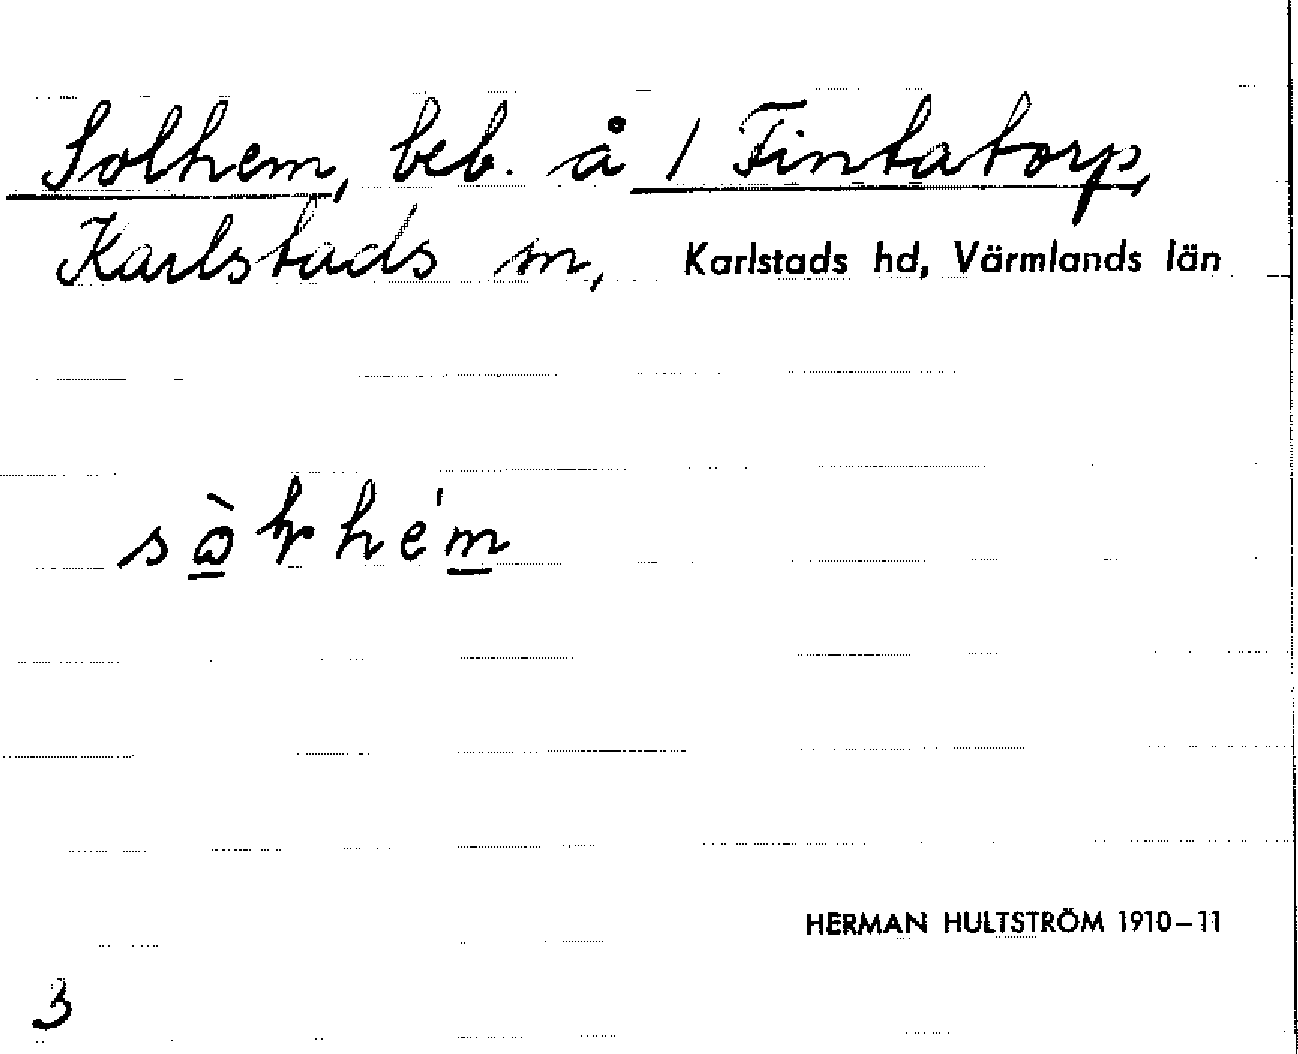 Solhem, beb. å 1 Fintatorp,
Karlstads sn, Karlstads hd, Värmlands län
HERMAN HULTSTRÖM 1910–11
3